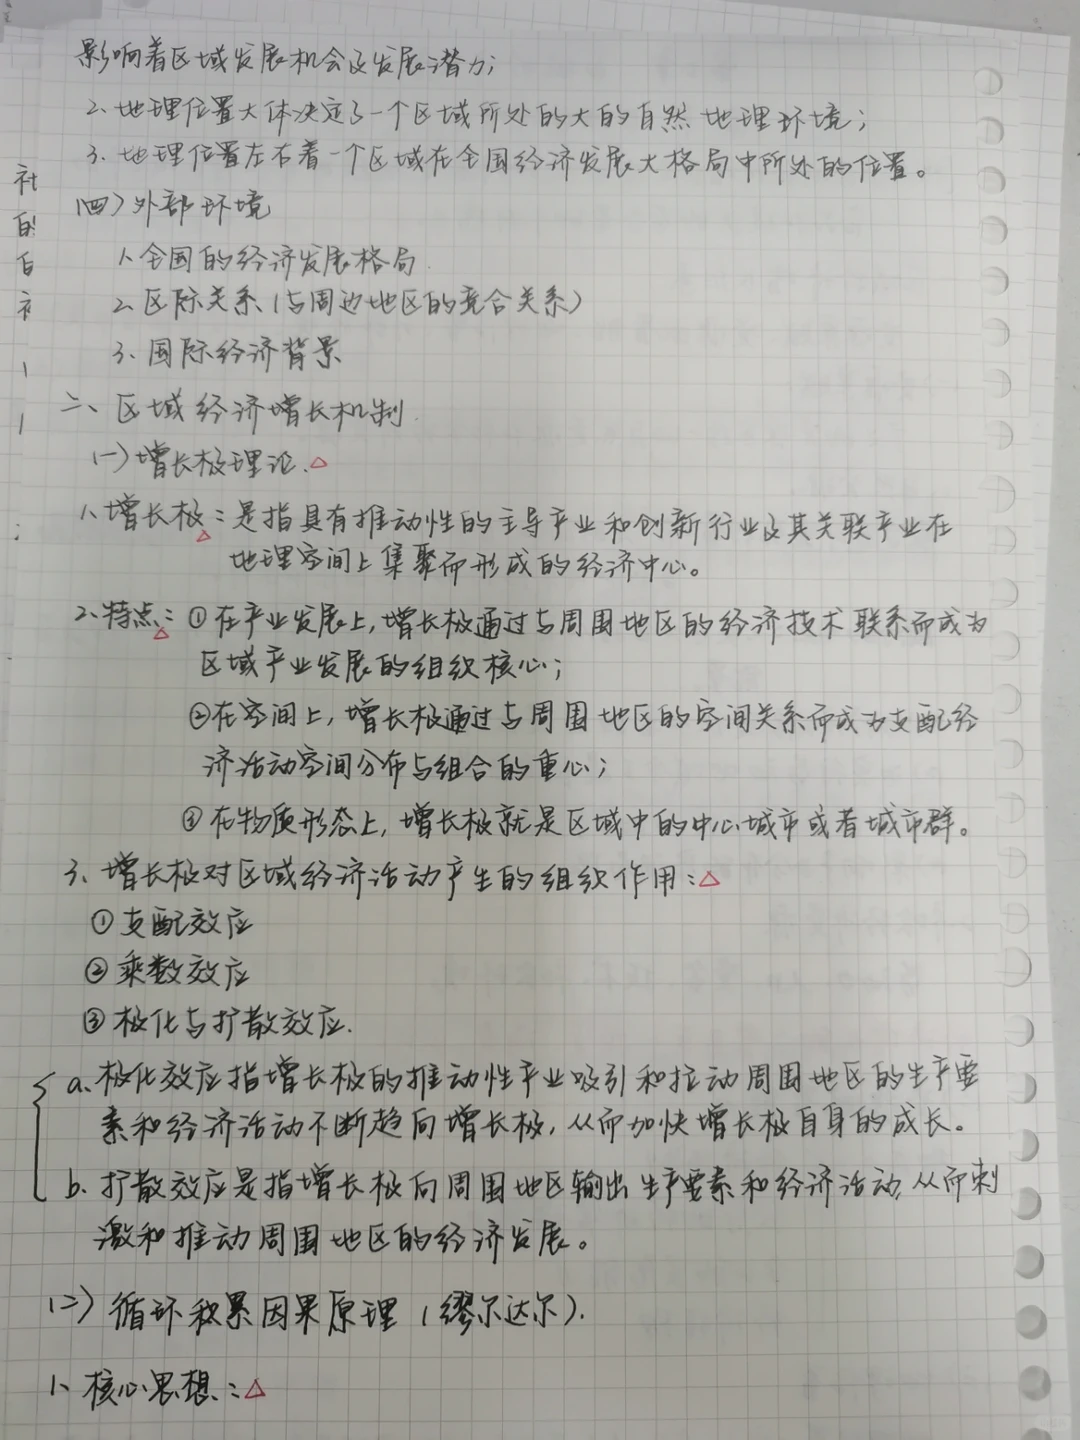 影响着区域发展机会及发展潜力;
2.地理位置大体决定了一个区域所处的大的自然地理环境;
3.地理位置左右着一个区域在全国经济发展大格局中所处的位置。
(四)外部环境
1.全国的经济发展格局
2.区际关系(与周边地区的竞合关系)
3.国际经济背景
二、区域经济增长机制
(一)增长极理论.△
1.增长极:是指具有推动性的主导产业和创新行业及其关联产业在
地理空间上集聚而形成的经济中心。
2.特点:①在产业发展上,增长极通过与周围地区的经济技术联系而成为
区域产业发展的组织核心;
②在空间上,增长极通过与周围地区的空间关系而成为支配经
济活动空间分布与组合的重心;
③在物质形态上,增长极就是区域中的中心城市或者城市群。
3.增长极对区域经济活动产生的组织作用:△
①支配效应
②乘数效应
③极化与扩散效应.
a.极化效应指增长极的推动性产业吸引和拉动周围地区的生产要
素和经济活动不断趋向增长极,从而加快增长极自身的成长。
b.扩散效应是指增长极向周围地区输出生产要素和经济活动,从而刺
激和推动周围地区的经济发展。
(二)循环积累因果原理(缪尔达尔).
1.核心思想:△
社
的
自